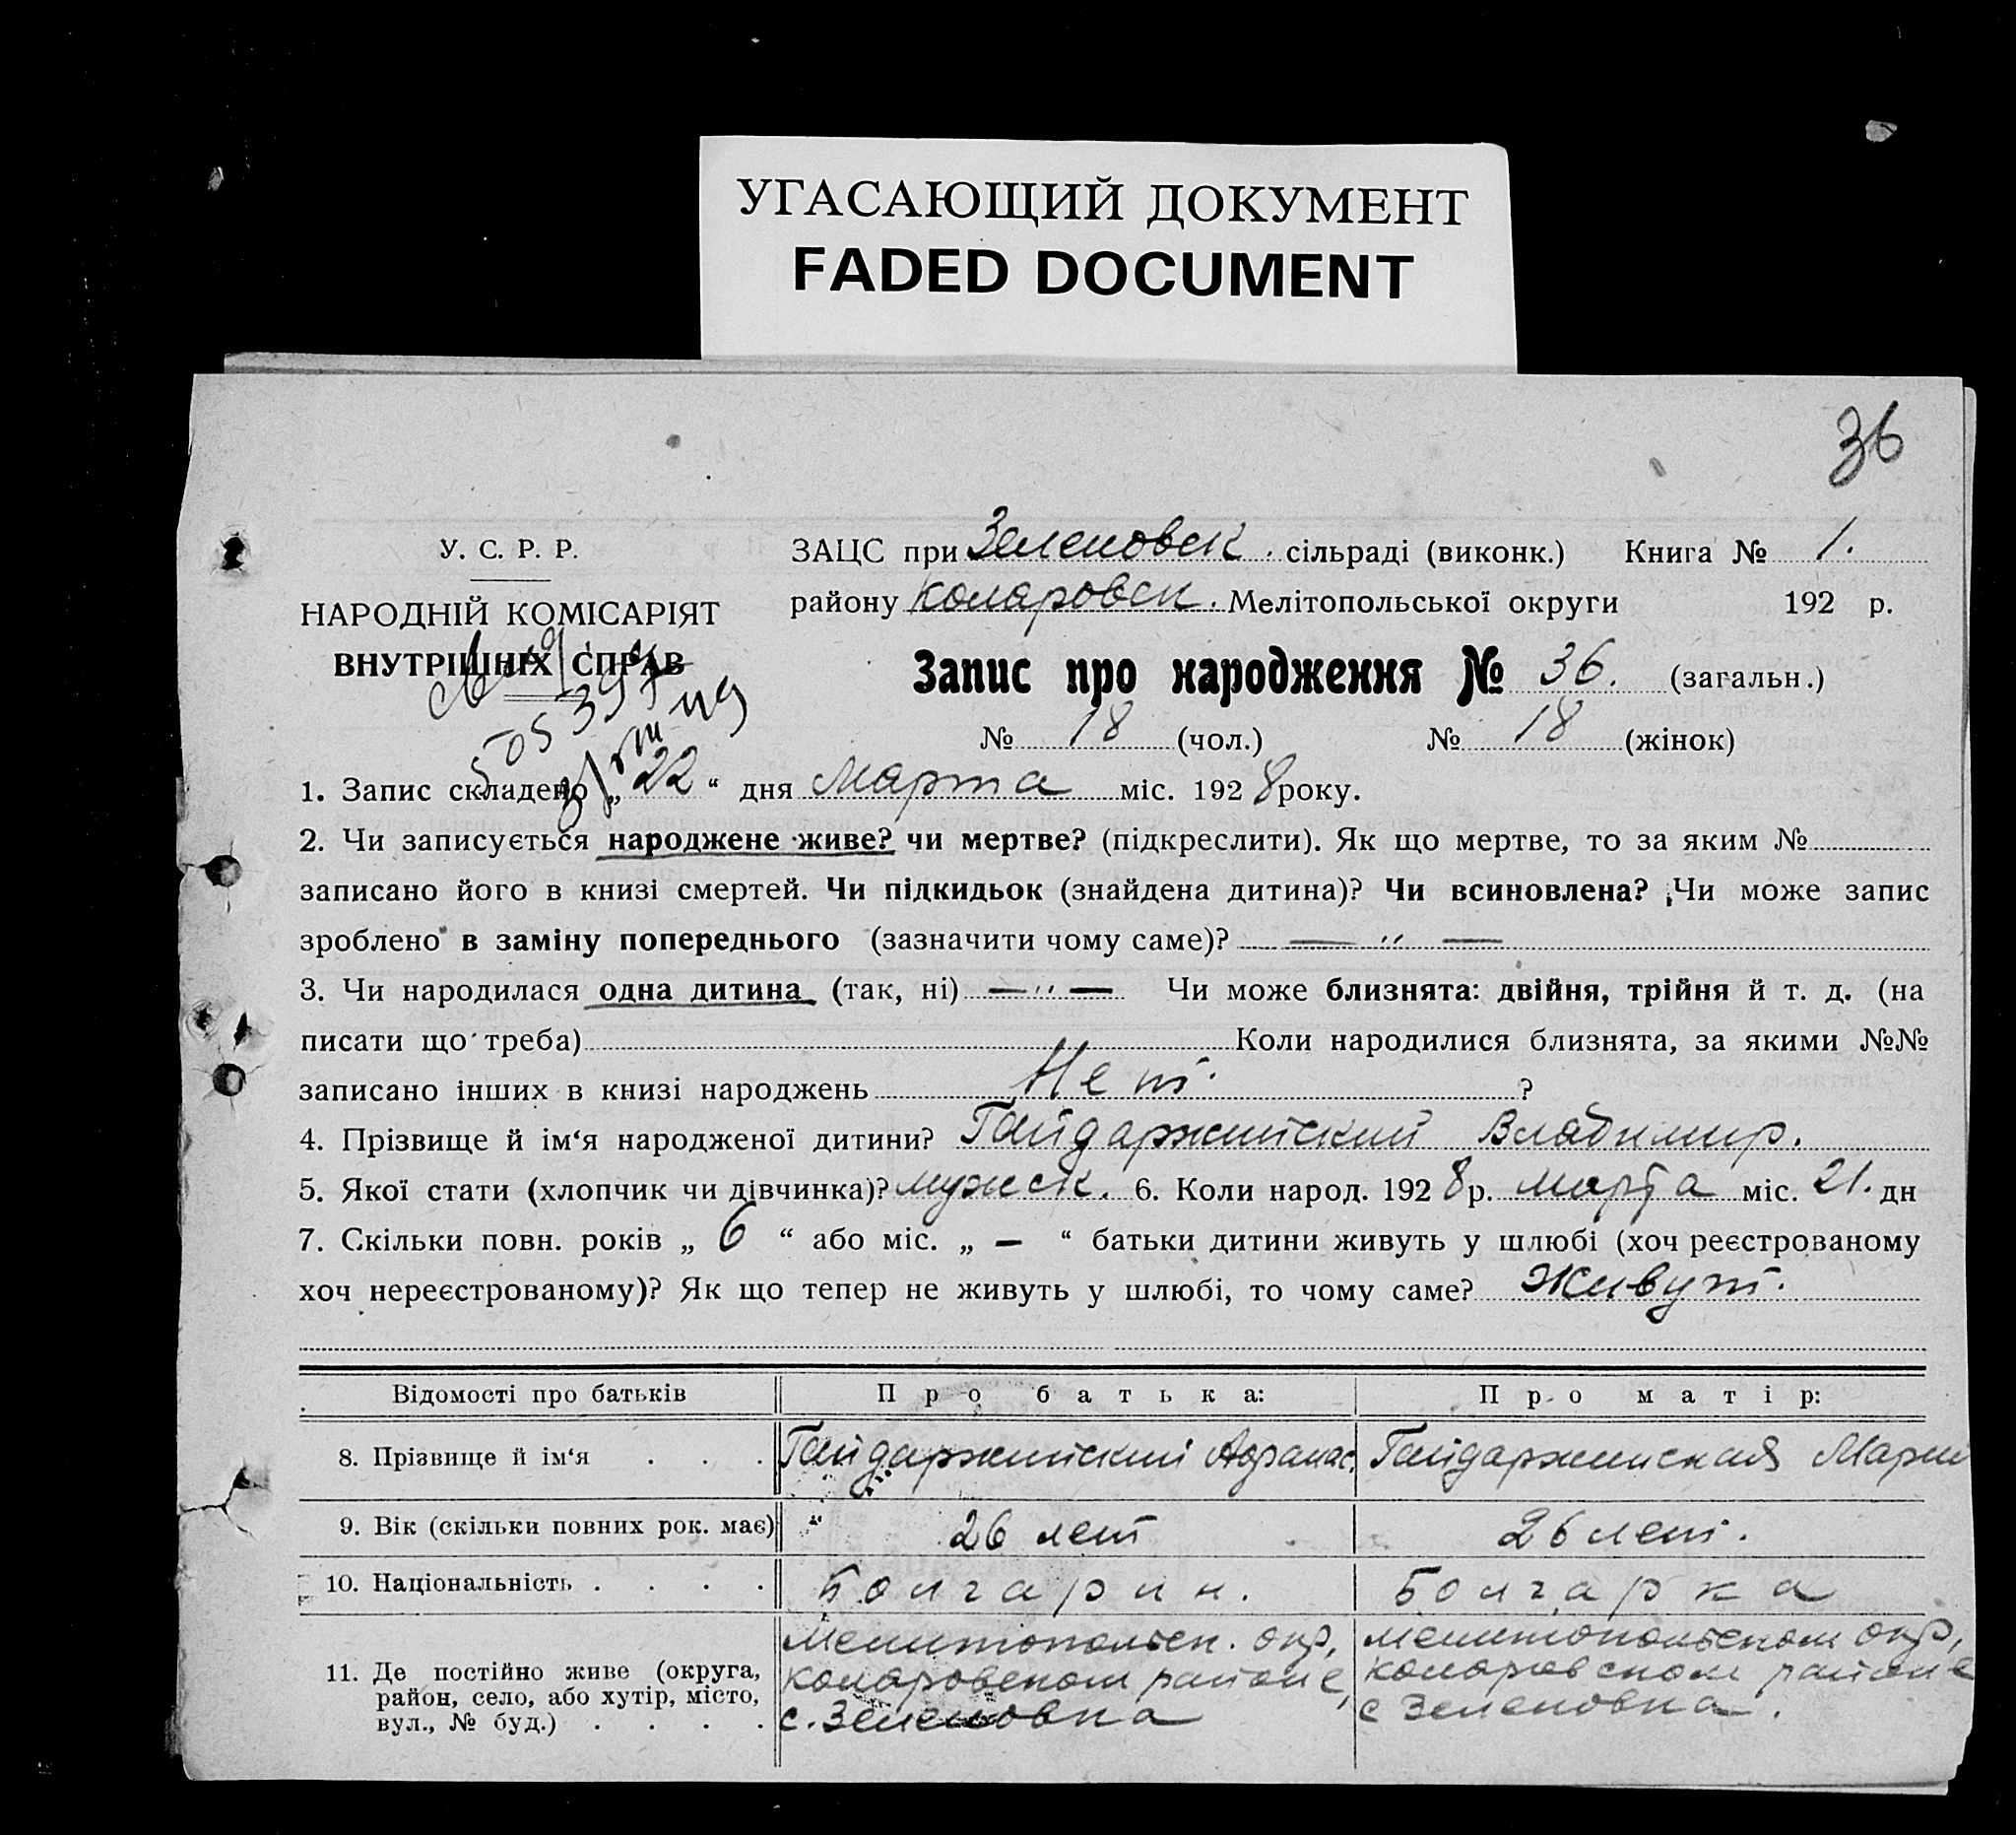 УГАСАЮЩИЙ ДОКУМЕНТ
FADED DOCUMENT
36
У. С. Р. Р.
НАРОДНІЙ КОМІСАРІЯТ
ВНУТРІШНІХ СПРАВ
ЗАЦС при Зеленовск. сільраді (виконк.) Книга № 1.
району Коларовск. Мелітопольської округи 192 р.
Запис про народження № 36. (загальн.)
№ 18 (чол.) № 18 (жінок)
1. Запис складено „22“ дня Марта міс. 1928 року.
2. Чи записується народжене живе? чи мертве? (підкреслити). Як що мертве, то за яким №
записано його в книзі смертей. Чи підкидьок (знайдена дитина)? Чи всиновлена? Чи може запис
зроблено в заміну попереднього (зазначити чому саме)? — " —
3. Чи народилася одна дитина (так, ні) — " — Чи може близнята: двійня, трійня й т. д. (на
писати що треба) Коли народилися близнята, за якими №№
записано інших в книзі народжень Нет. ?
4. Прізвище й ім‘я народженої дитини? Гайдаржийский Владимир.
5. Якої стати (хлопчик чи дівчинка)? мужск. 6. Коли народ. 1928 р. марта міс. 21. дн
7. Скільки повн. років „ 6 “ або міс. „ — “ батьки дитини живуть у шлюбі (хоч реєстрованому
хоч нереєстрованому)? Як що тепер не живуть у шлюбі, то чому саме? Живут.
Відомості про батьків Про батька: Про матір:
8. Прізвище й ім‘я . . . Гайдаржийский Афанас. Гайдаржииская Мария
9. Вік (скільки повних рок. має) 26 лет 26 лет.
10. Національність . . . . Болгарин. Болгарка
11. Де постійно живе (округа, район, село, або хутір, місто, вул., № буд.) . . . .
Мелитопольск. окр, Коларовском районе, с. Зеленовка
Мелитопольском окр, Коларовском районе с Зеленовка.